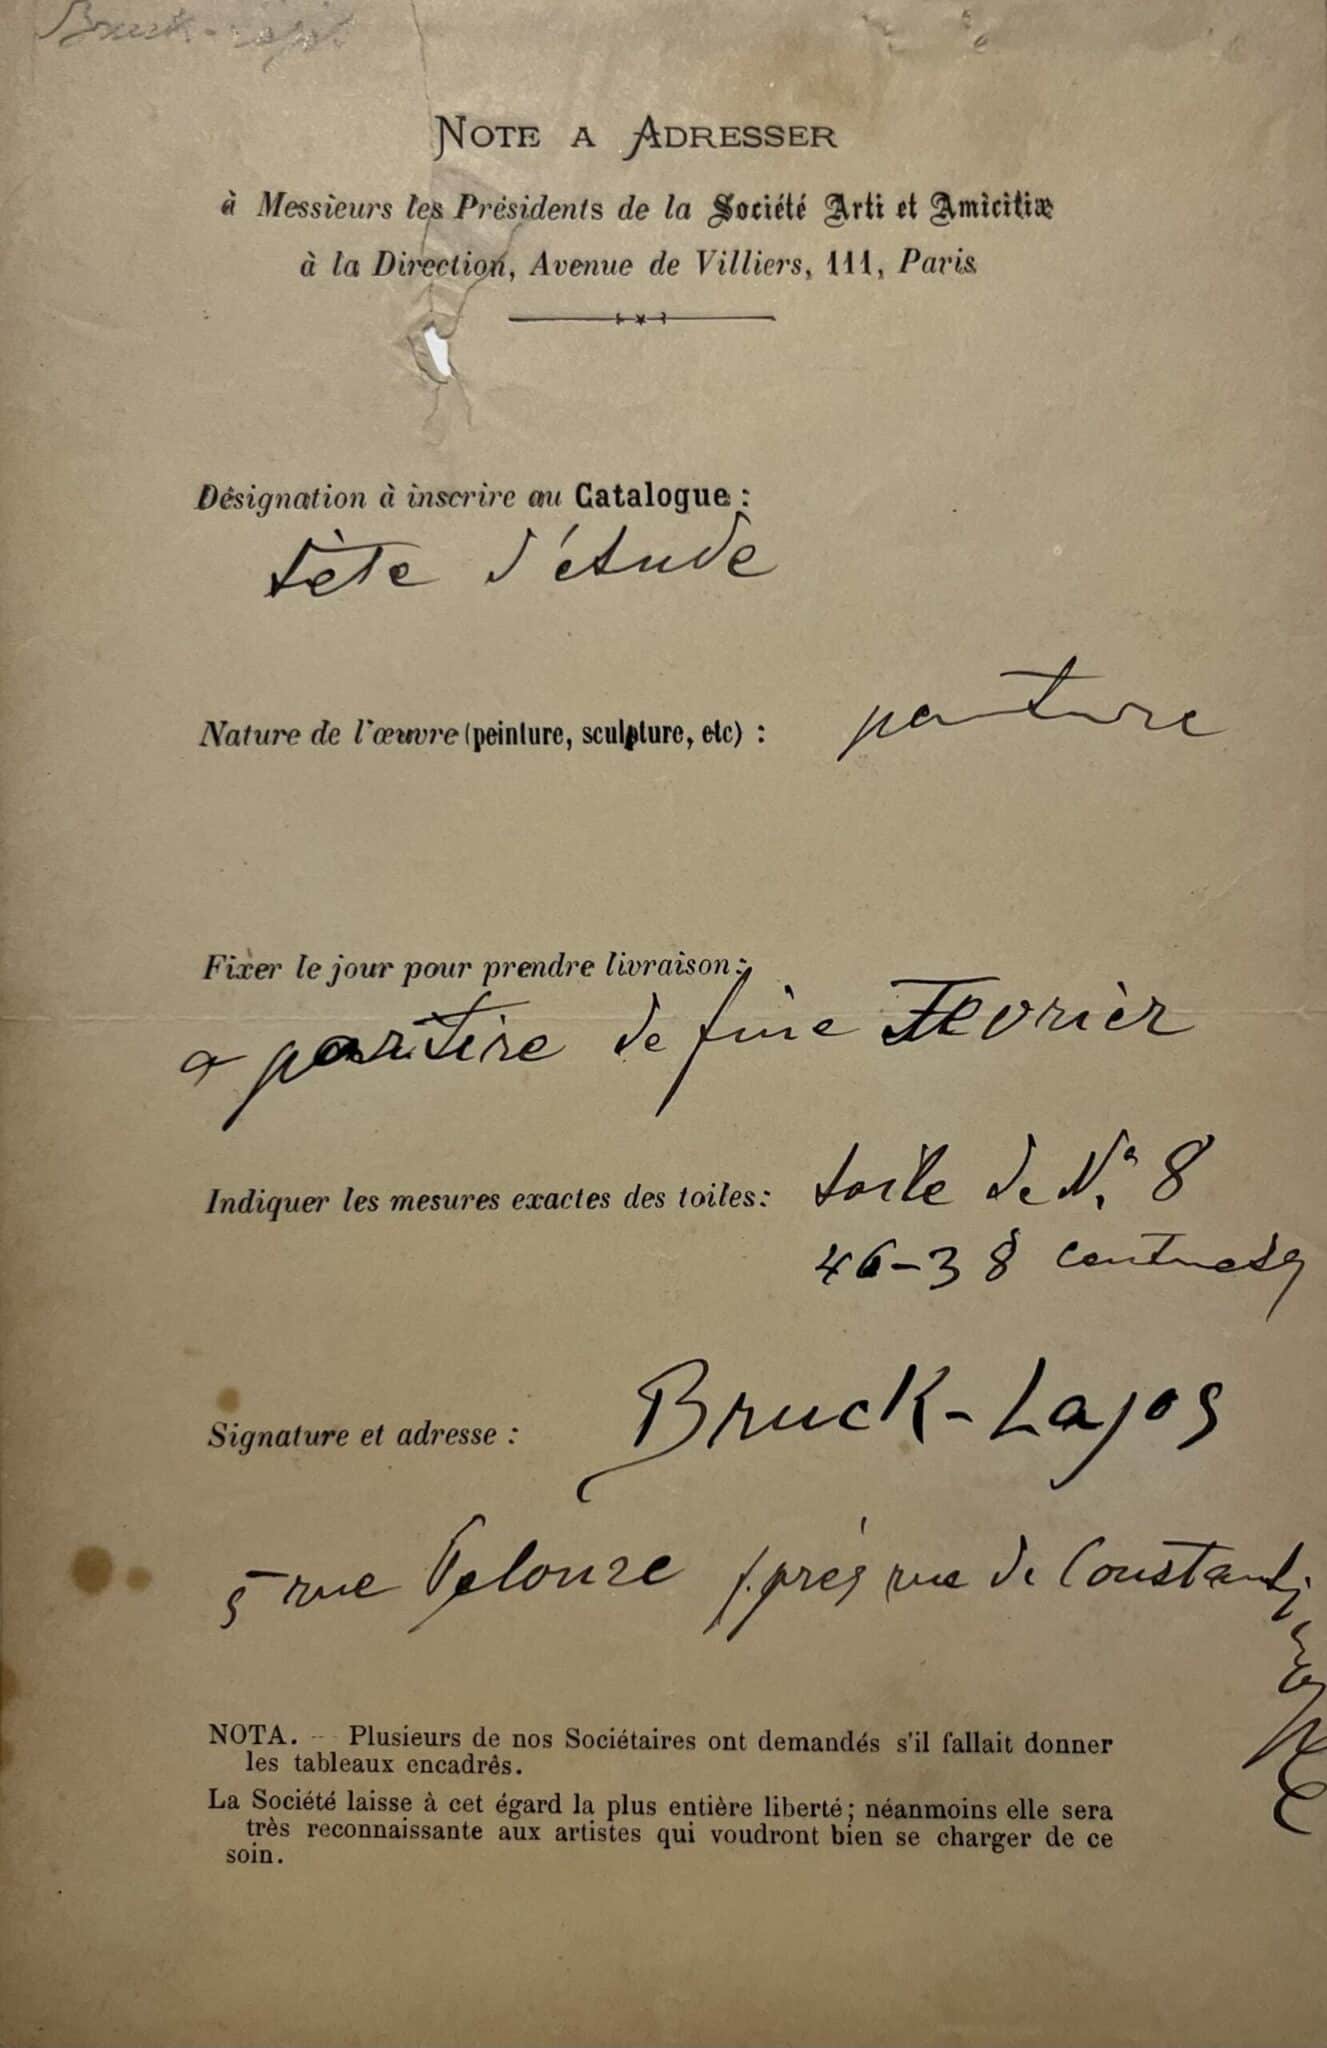 Bruck-Lajos
NOTE A ADRESSER
à Messieurs les Présidents de la Société Arti et Amicitiæ
à la Direction, Avenue de Villiers, 111, Paris
Désignation à inscrire au Catalogue :
tète d'étude
Nature de l'œuvre (peinture, sculpture, etc) : peinture
Fixer le jour pour prendre livraison :
a partire de fine Fevrièr
Indiquer les mesures exactes des toiles : toile de No 8
46-38
Signature et adresse : Bruck-Lajos
5 rue Pelouze près rue de Constantinople
NOTA. — Plusieurs de nos Sociétaires ont demandés s'il fallait donner
les tableaux encadrés.
La Société laisse à cet égard la plus entière liberté ; néanmoins elle sera
très reconnaissante aux artistes qui voudront bien se charger de ce
soin.